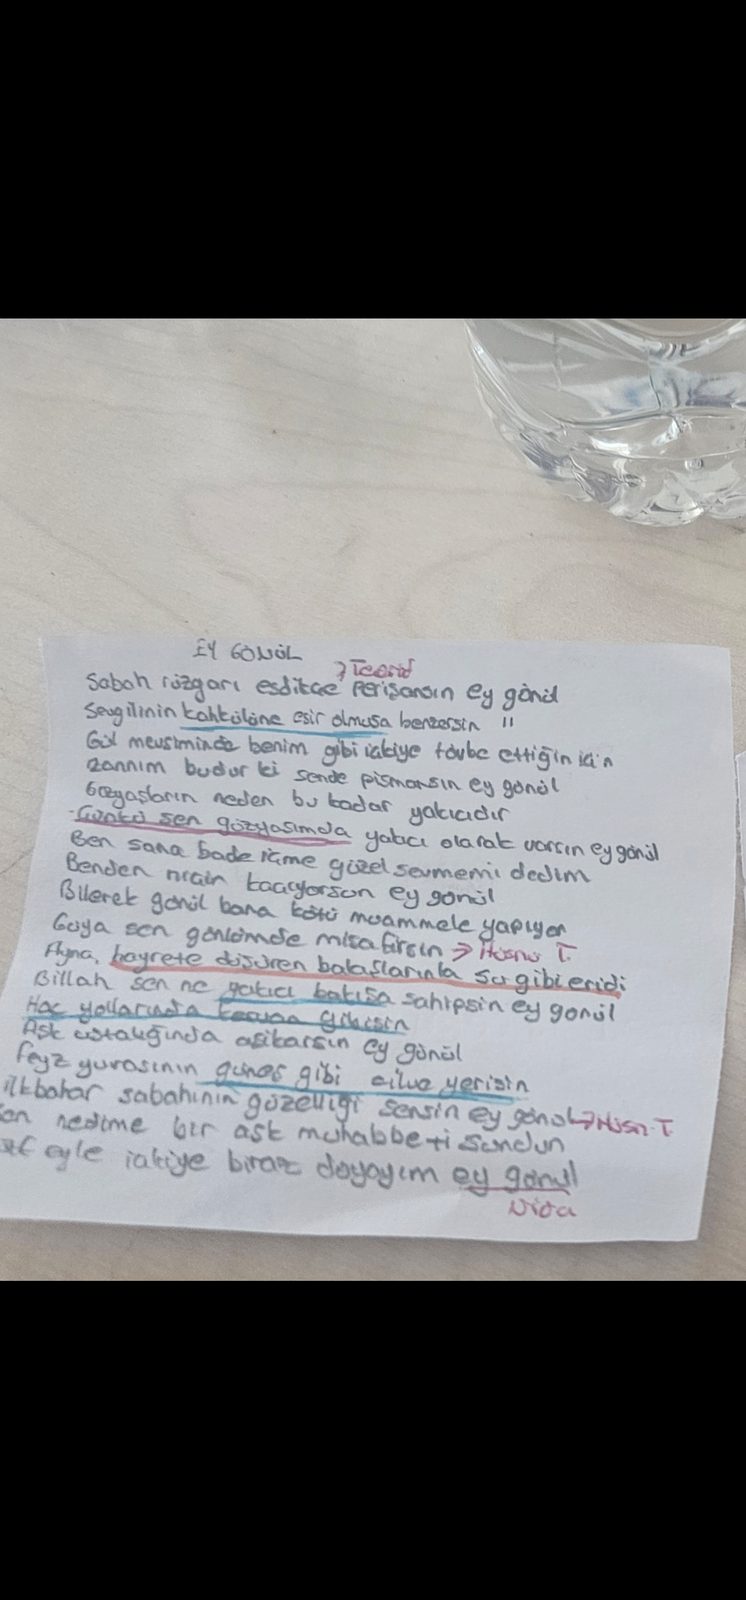 EY GÖNÜL
→ Tecrid
Sabah rüzgarı esdikçe perişansın ey gönül
Sevgilinin kahkülüne esir olmuşa benzersin "
Gül mevsiminde benim gibi içkiye tövbe ettiğin için
zannım budur ki sende pişmansın ey gönül
Gözyaşların neden bu kadar yakıcıdır
Çünkü sen gözyaşımda yakıcı olarak varsın ey gönül
Ben sana bade içme güzel sevmemi dedim
Benden niçin kaçıyorsun ey gönül
Bilerek gönül bana kötü muammele yapıyor
Güya sen gönlümde misafirsin → Hüsnü T.
Ayna, hayrete düşüren bakışlarınla su gibi eridi
Billah sen ne yakıcı bakışa sahipsin ey gönül
Hac yollarında kervan gibisin
Aşk ustalığında aşikarsın ey gönül
feyz yuvasının güneş gibi cilve yerisin
ilkbahar sabahının güzelliği sensin ey gönül → Hüsn. T
nedime bir aşk muhabbeti sundun
eyle içkiye biraz doyayım ey gönül
Nida